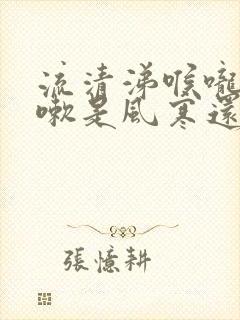 流清涕喉嚨
嗽是風寒還
張憶耕